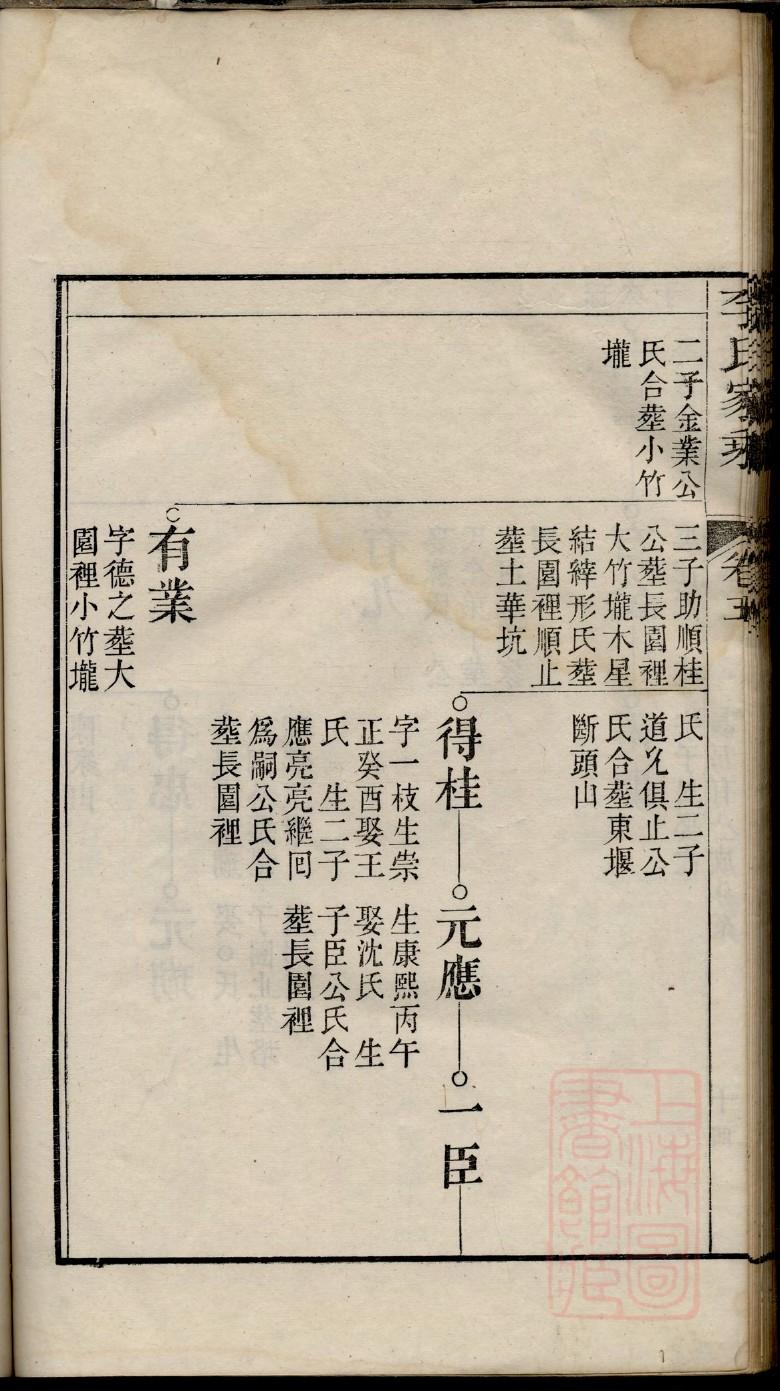 李氏家乘
卷五
二子金業公
氏合塟小竹
壠
三子助順桂
公塟長園裡
大竹壠木星
結繂形氏塟
長園裡順止
塟土華坑
氏 生二子
道允俱止公
氏合塟東堰
斷頭山
得桂
字一枝生崇
正癸酉娶王
氏 生二子
應亮亮繼囘
爲嗣公氏合
塟長園裡
元應
生康熙丙午
娶沈氏 生
子臣公氏合
塟長園裡
一臣
有業
字德之塟大
園裡小竹壠
上海圖
書館藏